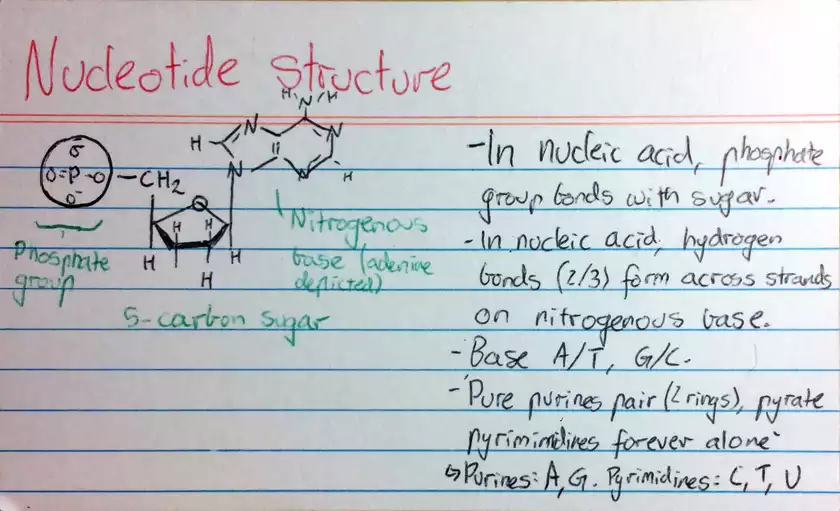 Nucleotide Structure
H N H
H N N
O=P-O-
O-
O-
CH2
N N H
O
H H
H H
H
Phosphate
group
5-carbon sugar
Nitrogenous
base (adenine
depicted)
-In nucleic acid, phosphate
group bonds with sugar.
-In nucleic acid, hydrogen
bonds (2/3) form across strands
on nitrogenous base.
-Base A/T, G/C.
-'Pure purines pair (2 rings), pyrate
pyrimimidines forever alone'
↳Purines: A, G. Pyrimidines: C, T, U